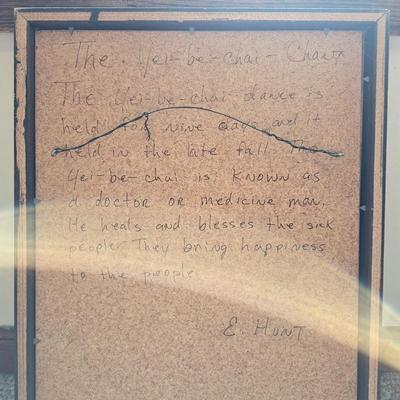 The Yei-be-chai-Chant
The Yei-be-chai dance is
held for nine days and it
held in the late fall. The
Yei-be-chai is known as
a doctor or medicine man,
He heals and blesses the sick
people. They bring happiness
to the people.
E. Hunt